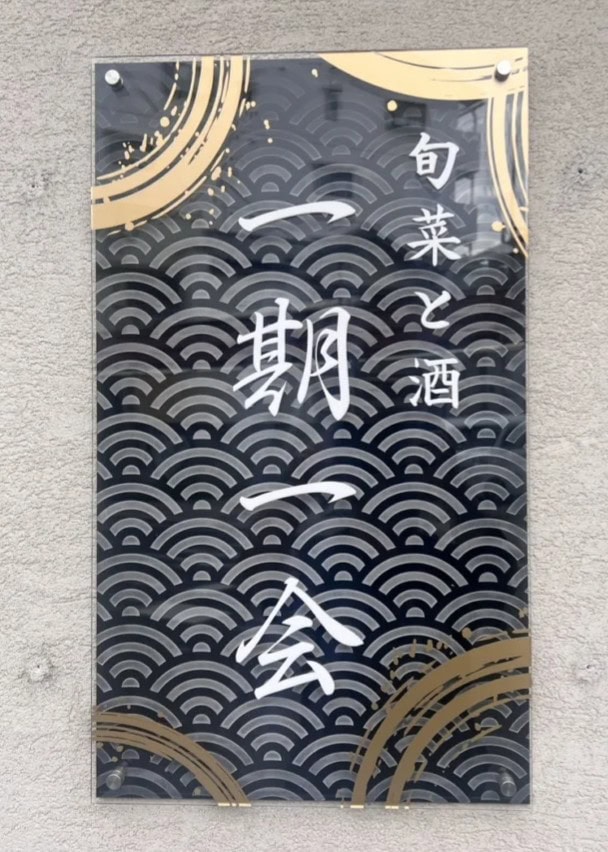 旬菜と酒
一期一会